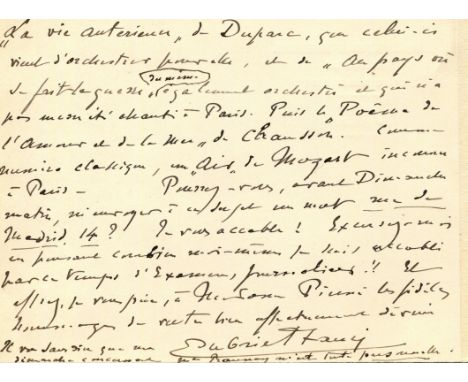 "La vie antérieure" de Duparc, que celui-ci
vient d'orchestrer pour elle, et de "Au pays où
se fait la guerre" du même, également orchestré et qui n'a
pas encore été chanté à Paris. Puis le "Poème de
l'Amour et de la Mer" de Chausson. Comme
numéro classique, un "Air" de Mozart inconnu
à Paris — Pouvez-vous, avant Dimanche
matin, m'envoyer à ce sujet un mot rue de
Madrid 14? Je vous accable! Excusez-moi
en pensant combien moi-même je suis accablé
par ce temps d'Examens journaliers!! Et
offrez, je vous prie, à Me Pierné les fidèles
hommages de votre bien affectueusement dévoué
Gabriel Fauré
Il va sans dire que
dimanche